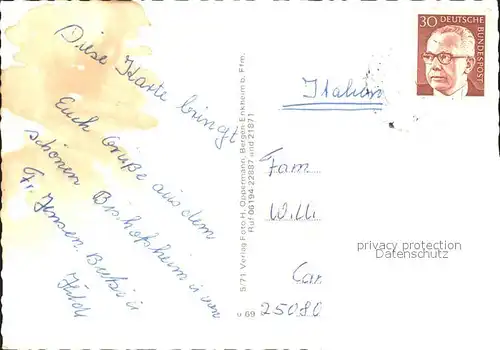 Diese Karte bringt
Euch Grüße aus dem
schönen Bischofsheim u. von
Fr. Jensen.
S/71 Verlag Foto H. Oppermann, Bergen-Enkheim b. Ffm.
Ruf 06194-22887 and 21871
v 69
30 DEUTSCHE
BUNDESPOST
Italien
Fam
Willi
Car
25080
privacy protection
Datenschutz